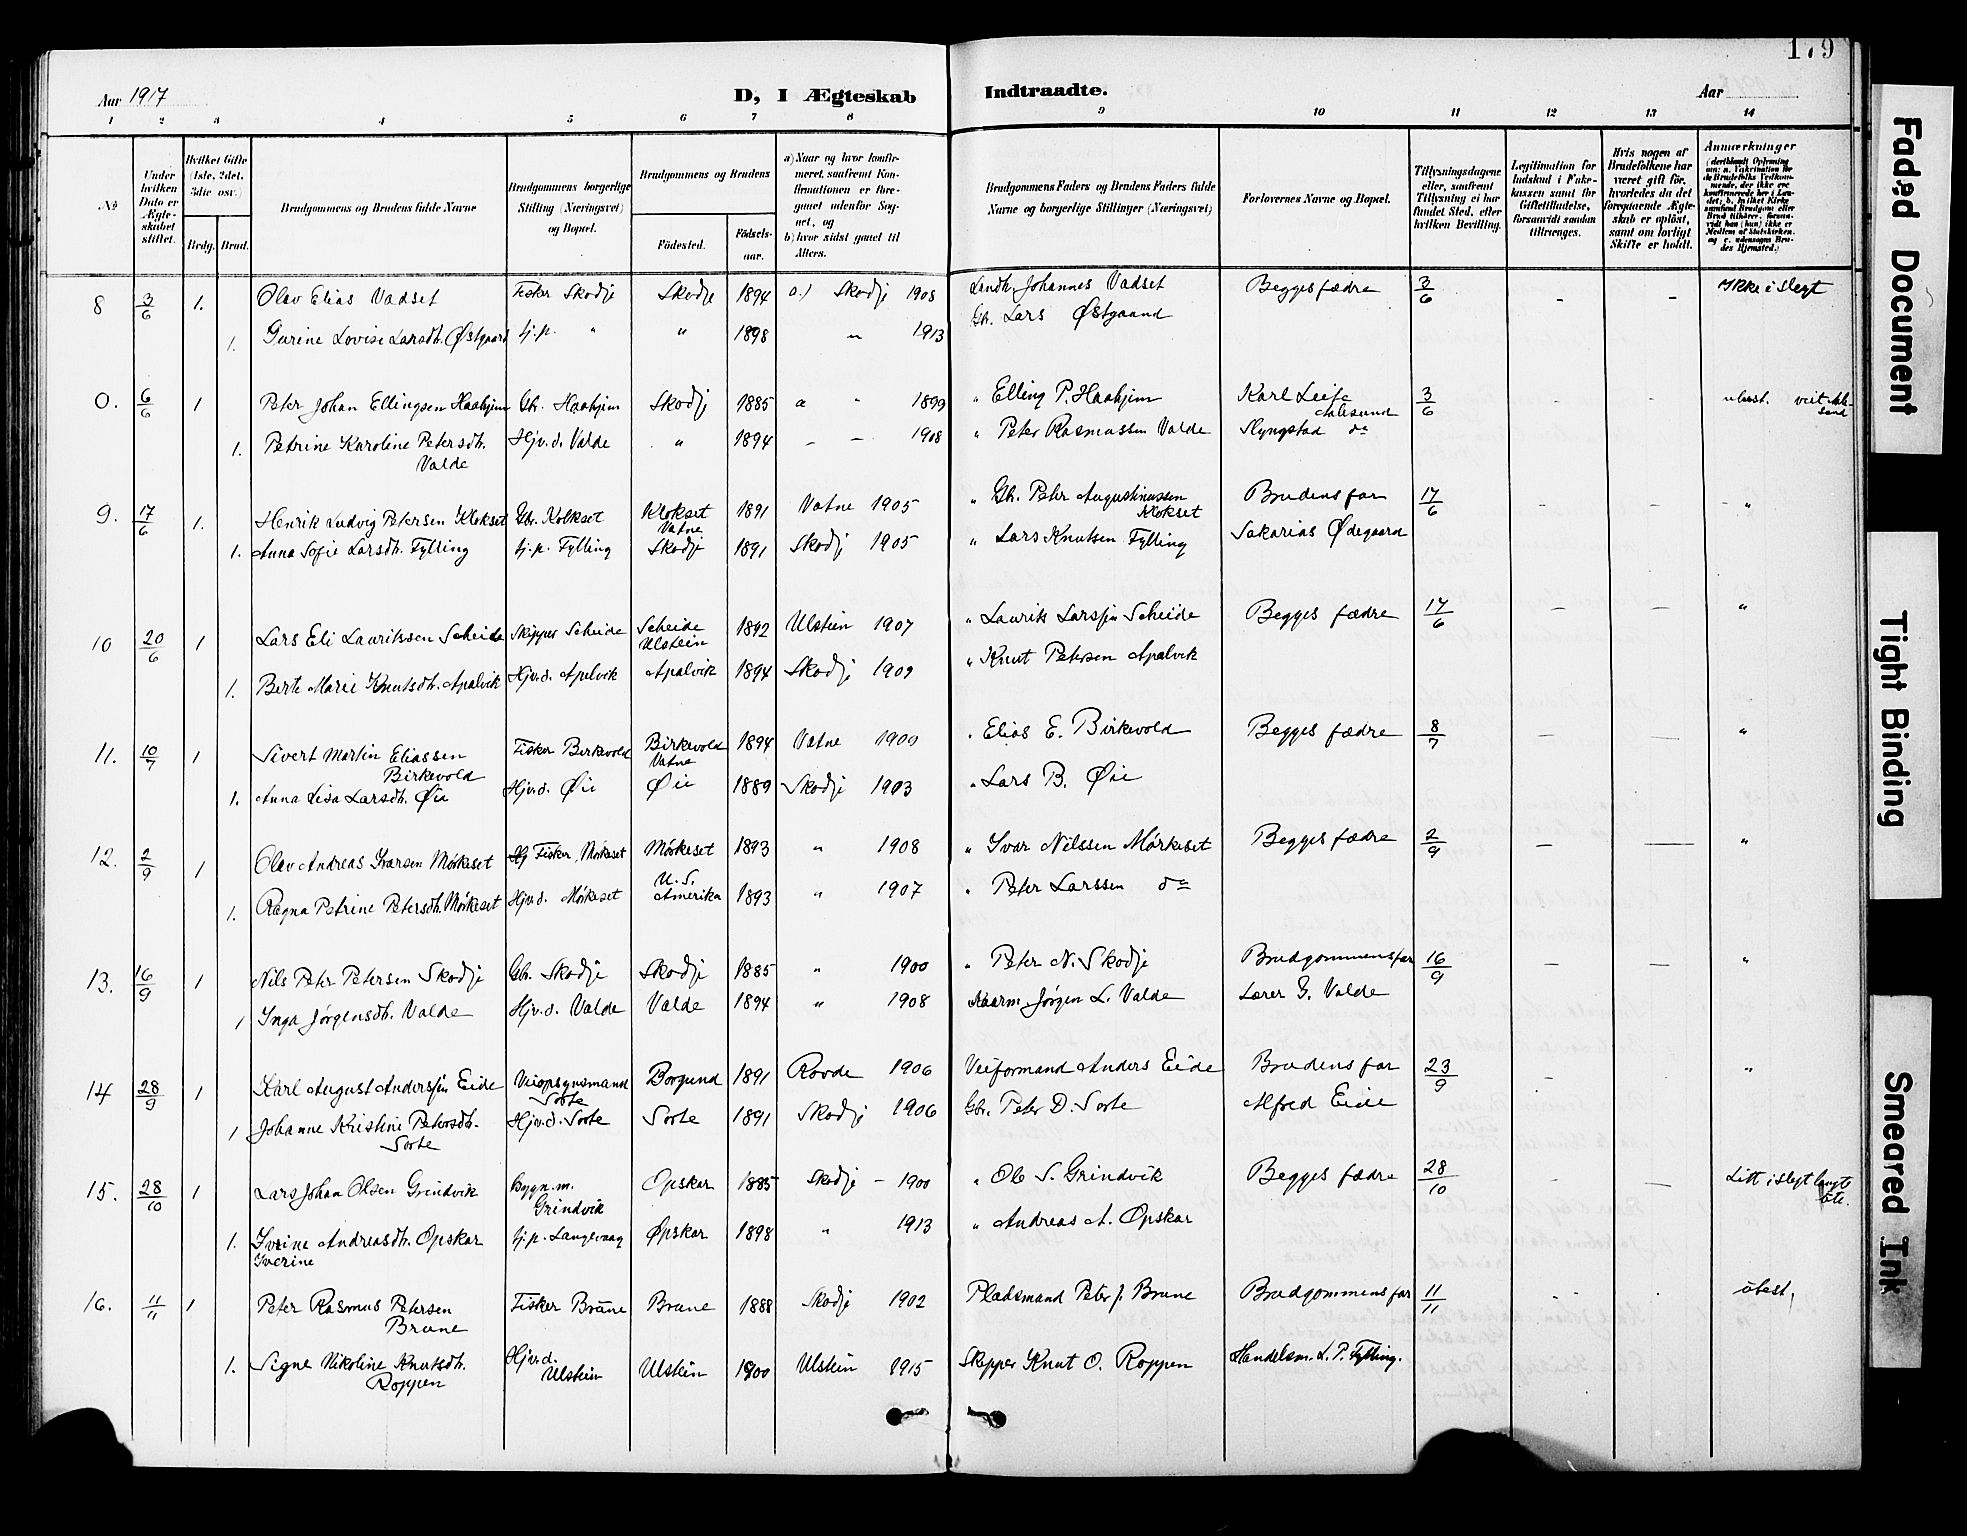 179
Aar 1917 D, I Ægteskab Indtraadte. Aar
1 2 3 4 5 6 7 8 9 10 11 12 13 14
№
Under hvilken Dato er Ægteskabet stiftet.
Hvilket Gifte (1ste, 2det, 3die osv.)
Brdg. Brud.
Brudgommens og Brudens fulde Navne
Brudgommens borgerlige Stilling (Næringsvei) og Bopæl.
Brudgommens og Brudens
Födested. Födselsaar.
a) Naar og hvor konfirmeret, samt om Konfirmationen er foregaaet udenfor Sognet, og
b) hvor sidst gaaet til Alters.
Brudgommens Faders og Brudens Faders fulde Navne og borgerlige Stillinger (Næringsvei)
Forlovernes Navne og Bopæl.
Tillysningsdagene eller, saafremt Tillysning ei har fundet Sted, efter hvilken Bevilling.
Legitimation for Indskud i Enkekassen samt for Giftetilladelse, forsaavidt saadan tiltrænges.
Hvis nogen af Brudefolkene har været gift för, hvorledes da det foregaaende Ægteskab er oplöst, samt om lovligt Skifte er holdt.
Anmærkninger
8 3/6 1. Olav Elias Vadset Fisker Skodje Skodje 1894 a.) Skodje 1908 Landh. Johannes Vadset Begges fædre 3/6 - - Ikke i slegt
1. Gurine Lovise Larsdh. Østgaard tj.p. " " 1898 " 1913 Gb. Lars Østgaard
0. 6/6 1 Peter Johan Ellingsen Haahjem Gb. Haahjem Skodje 1885 a " 1899 " Elling P. Haahjem Karl Leite Aalesund 3/6 - -
1. Petrine Karoline Petersdh. Valde Hjv.d. Valde " 1894 - - 1908 " Peter Rasmussen Valde Slyngstad do
9. 17/6 1. Henrik Ludvig Petersen Klokset Gbr. Kolkset Klokset Vatne 1891 Vatne 1905 " Gb. Peter Augustinussen Klokset Brudens far 17/6 - - "
1. Anna Sofie Larsdh. Fylling tj.p. Fylling Skodje 1891 Skodj 1905 " Lars Knutsen Fylling Sakarias Ødegaard
10 20/6 1 Lars Eli Lauritssen Scheide Skipper Scheide Scheide Ulstein 1892 Ulstein 1907 " Laurits Larssen Scheide Begges fædre 17/6 - - "
1. Berte Marie Knutsdh. Apalvik Hjv.d. Apalvik Apalvik 1894 Skodj 1909 " Knut Petersen Apalvik
11. 10/7 1 Sivert Martin Eliassen Birkevold Fisker Birkevold Birkevold Vatne 1894 Vatne 1909 " Elias E. Birkevold Begges fædre 8/7 - - "
1. Anna Lisa Larsdh. Øie Hjv.d. Øie Øie 1889 Skodje 1903 " Lars B. Øie
12. 2/9 1 Olav Andreas Ivarsen Mørkeset Fisker Mørkeset Mørkeset 1893 " 1908 " Ivar Nilssen Mørkeset Begges fædre 2/9 - - "
1. Ragna Petrine Petersdh. Mørkeset Hjv.d. Mørkeset U.S. Amerika 1893 " 1907 " Peter Larssen do
13. 16/9 1 Nils Peter Petersen Skodje Gb. Skodje Skodje 1885 " 1900 " Peter N. Skodje Brudgommens far 16/9 - - "
1 Inga Jørgensdh. Valde Hjv.d. Valde Valde 1894 " 1908 Kaarm. Jørgen L. Valde Lærer G. Valde
14 28/9 1 Karl August Anderssen Eide Veiopsynsmand Sorte Borgund 1891 Rovde 1906 Veiformand Anders Eide Brudens far 23/9 - "
1 Johanne Kristine Petersdh. Sorte Hjv.d. Sorte Sorte 1891 Skodje 1906 Gbr. Peter D. Sorte Alfred Eide
15. 28/10 1 Lars Johan Olsen Grindvik Bygn.m. Grindvik Opskar 1885 Skodje - 1900 " Ole S. Grindvik Begges fædre 28/10 - - Litt i slegt langt ute.
1. Iverine Andreasdh. Opskar tj.p. Langevaag Opskar 1898 " 1913 " Andreas A. Opskar
Iverine
16. 11/11 1 Peter Rasmus Petersen Brune Fisker Brune Brune 1888 Skodje 1902 Pladsmand Peter J. Brune Brudgommens far 11/11 - -
1. Signe Nikoline Knutsdh. Roppen Hjv.d. Ulstein Ulstein 1900 Ulstein 1915 Skipper Knut O. Roppen Handelsm. L. P. Fylling.
Faded Document
Tight Binding
Smeared Ink